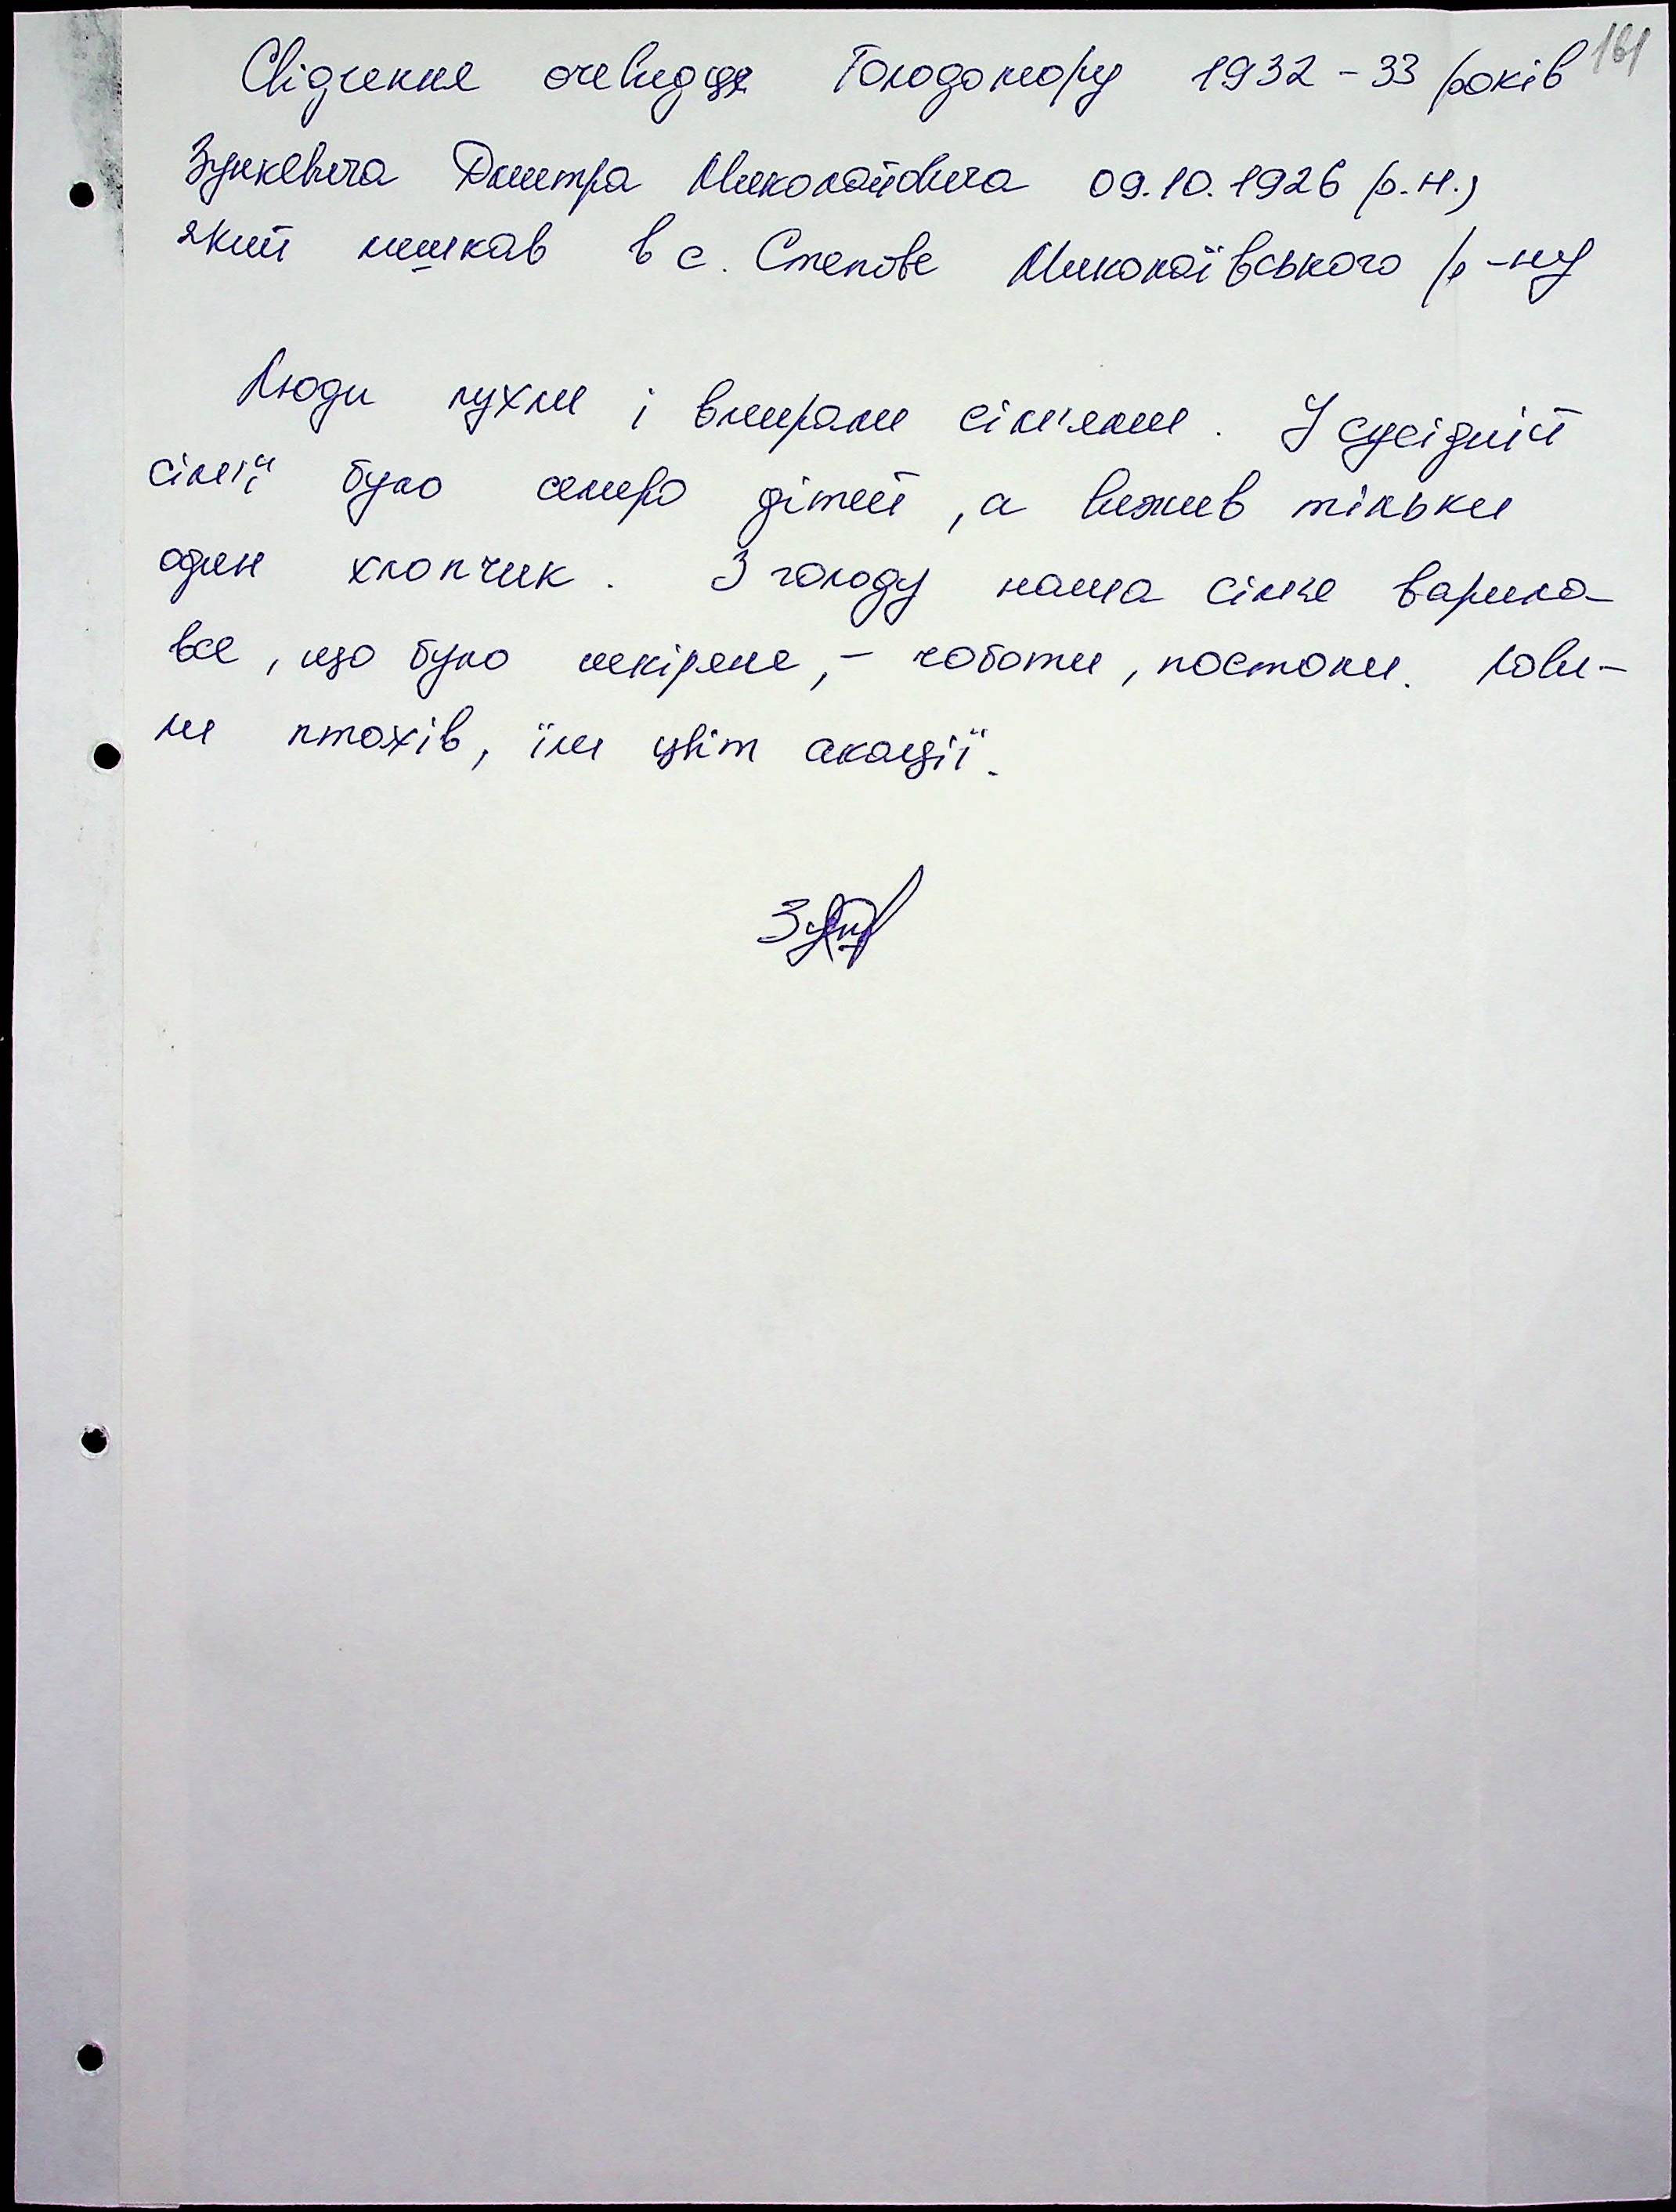 161
Свідчення очевидця Голодомору 1932 - 33 років
Зункевича Дмитра Миколайовича 09.10.1926 р.н.,
який мешкав в с. Степове Миколаївського р-ну
Люди пухли і вмирали сім'ями. У сусідній
сім'ї було семеро дітей, а вижив тільки
один хлопчик. З голоду наша сім'я варила
все, що було шкіряне, - чоботи, постоли. Лови-
ли птахів, їли цвіт акації.